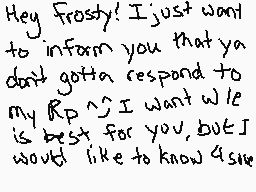 Hey Frosty! I just want
to inform you that ya
don't gotta respond to
my Rp ^◡^ I want w le
is best for you, but I
would like to know 4 sure